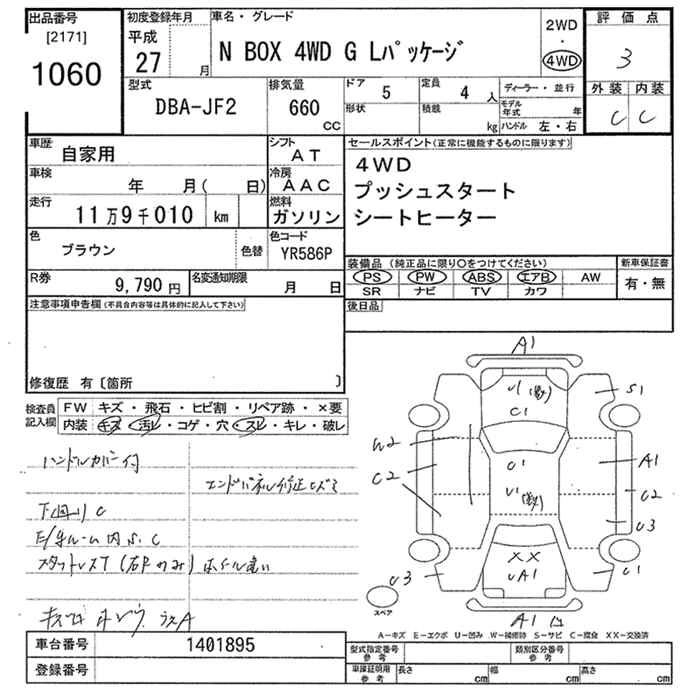 出品番号 初度登録年月 車名・グレード 2WD 評価点
[2171] 平成 ・
1060 27 月 N BOX 4WD G Lパッケージ 4WD 3
型式 排気量 ドア 5 定員 4 人 ディーラー・並行 外装 内装
DBA-JF2 660 CC 形状 積載 kg モデル年式 年 C C
ハンドル 左・右
車歴 自家用 シフト AT セールスポイント(正常に機能するものに限ります)
車検 年 月( 日) 冷房 AAC 4WD
走行 11万9千010 km 燃料 ガソリン プッシュスタート
シートヒーター
色 ブラウン 色替 色コード YR586P
装備品(純正品に限り○をつけてください) 新車保証書
R券 9,790円 名変通知期限 月 日 PS PW ABS エアB AW 有・無
SR ナビ TV カワ
注意事項申告欄(不具合内容等は具体的に記入して下さい) 後日品
修復歴 有〔箇所 〕
検査員記入欄 FW キズ・飛石・ヒビ割・リペア跡・×要
内装 キズ・汚レ・コゲ・穴・スレ・キレ・破レ
ハンドルカバー付
エンドパネル修正キズミ
下回りC
E/gルーム内S、C
スタットレスT(右Rのみ)ホイール違い
A1
U1
C1
S1
W2
C2
C1
U1
A1
C2
U3
XX
UA1
U3
C1
A1
スペア
A−キズ E−エクボ U−凹み W−補修跡 S−サビ C−腐食 XX−交換済
車台番号 1401895 型式指定番号 参考 類別区分番号 参考
登録番号 車庫証明用 参考 長さ cm 幅 cm 高さ cm